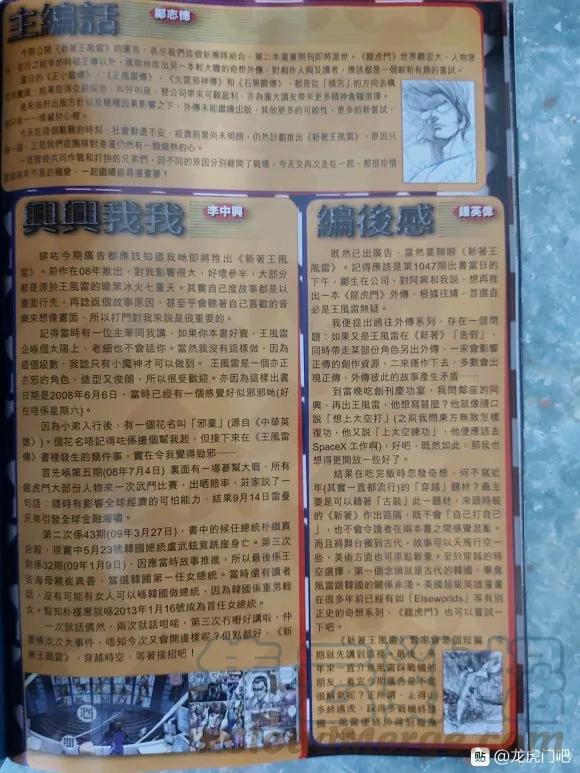 主編話
鄺志德
今期公開《新著王風雷》的廣告，表示我們這個新團隊組合，第二本漫畫期刊即將面世。《龍虎門》世界觀宏大，人物眾
進取地推出另一本較大膽的奇想外傳，對創作人與及讀者，應該都是一個嶄新有趣的嘗試。
當日的《王小龍傳》，《王風雷傳》，《火雲邪神傳》和《石黑龍傳》，都是從「補完」的方向去構
結果取得空前成功，叫好叫座，替公司帶來可觀盈利，亦為廣大讀友帶來更多精神食糧選擇。
後來由於出版方針以及種種因素影響之下，外傳未能繼續出版，其他更多的可能性，更多的新嘗試，
今天在這個艱難的時刻，社會動盪不安，經濟前景尚未明朗，仍然計劃推出《新著王風雷》，原因只
正是我們這團隊對港漫仍然有一顆熾熱的心。
一班曾經共同作戰和打拚的兄弟們，因不同的原因分別離開了戰場，今天又再次走在一起，都很珍惜
機會，一起繼續追尋漫畫夢！
興興我我
李中興
睇咗今期廣告都應該知道我哋即將推出《新著王風
雷》。前作在08年推出，對我影響很大，好壞參半，大部分
都是源於王風雷的暗黑冰火七重天。其實自己度故事都是以
畫面行先，再諗返個故事原因，甚至乎會聽著自己喜歡的音
樂來想像畫面，所以打鬥對我來說是很重要的。
記得當時有一位主筆同我講，如果你本書好賣，王風雷
企喺個太陽上，老細也不會話你。當然我沒有這樣做，因為
這個級數，我諗只有小魔神才可以做到。 王風雷是一個亦正
亦邪的角色，造型又俊朗，所以很受歡迎。亦因為這樣出書
日期是2008年6月6日，當時已經有一個感覺好似邪邪哋(好
在唔係星期六)。
因為小弟入行後，有一個花名叫「邪童」(源自《中華英
雄》)。個花名唔記得咗係邊個幫我起，但接下來在《王風雷
傳》書裡發生的幾件事，實在令我覺得勁邪——
首先喺第五期(08年7月4日) 裏面有一場慕幫大戰，所有
龍虎門大部份人物來一次武鬥比賽，出哂賠率，莊家說了一
句話：隨時有影響全球經濟的可怕能力，結果9月14日雷曼
兄弟引發全球金融海嘯。
第二次係43期(09年3月27日)，書中的候任總統朴繼真
自殺，現實中5月23號韓國總統盧武鉉竟跳崖身亡。第三次
則係32期(09年1月9日)，因應當時故事推進，所以最後係王
雷海母親崔真善，當選韓國第一任女總統。當時還有讀者
話，沒有可能有女人可以喺韓國做總統，因為韓國係重男輕
女。點知朴槿惠就喺2013年1月16號成為首任女總統。
一次就話偶然，兩次就話咁啱，第三次冇嘢好講啦，仲
要係次次大事件，唔知今次又會開邊樣呢？但點都好，《新
著王風雷》，穿越時空，等著接招吧！
編後感
鍾英偉
既然已出廣告，當然要聊聊《新著王
風雷》。記得應該是第1047期出書當日的
下午，鄺生在公司，對阿興和我說，想再推
出一本《龍虎門》外傳，根據往績，首選自
必是王風雷無疑。
我便提出過往外傳系列，存在一個問
題：如果又是王風雷在《新著》「告假」，
同時帶走某部分角色另出外傳，一來會影響
正傳的創作資源，二來運作下去，多數會出
現正傳，外傳彼此的故事產生矛盾……
到當晚吃創刊慶功宴，我問鄰座的阿
興，再出王風雷，他想寫甚麼？他就像隨口
說「想上太空打」(之前我問東方無敵怎樣
復功，他又說「上太空練功」，他便應該去
SpaceX 工作啊)，好吧，既然如此，那我也
想得更開放一些好了。
結果在吃完飯時忽發奇想，何不寫近
年(其實一直都流行)的「穿越」題材？最主
要是可以藉著「古裝」此一題材，來跟時裝
的《新著》作出區隔，既不會「自己打自己
」，也不會令讀者在兩本書之間感覺混亂。
而且將舞台搬到古代，故事可以天馬行空一
些，美術方面也可添點新意。至於穿越的時
空選擇，第一個念頭就是古代的韓國，畢竟
風雷跟韓國的關係非淺。美國超級英雄漫畫
在很多年前已經有如「Elseworlds」等有別
正史的奇想系列，《龍虎門》也可以嘗試一
下吧。
《新著王風雷》暫定會是個短篇
貼 @龙虎门吧